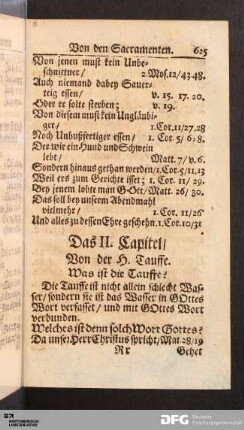 Von den Sacramenten. 625
Von jenen must kein Unbe-
schnittner/ 2.Mos.12/43.48.
Auch niemand dabey Sauer-
teig essen/ v. 15. 17. 20.
Oder er solte sterben; v. 19.
Von diesem muß kein Ungläubi-
ger/ 1.Cor.11/27.28
Noch Unbußfertiger essen/ 1. Cor. 5/6.8.
Der wie ein Hund und Schwein
lebt/ Matt. 7/v.6.
Sondern hinaus gethan werden/1.Cor.5/11.13
Weil ers zum Gerichte isset; 1. Cor. 11/29.
Bey jenem lobte man GOtt/Matt. 26/30.
Das soll bey unserm Abendmahl
vielmehr/ 1. Cor. 11/26
Und alles zu dessen Ehre geschehn.1.Cor.10/31
Das II. Capitel/
Von der H. Tauffe.
Was ist die Tauffe?
Die Tauffe ist nicht allein schlecht Was-
ser/sondern sie ist das Wasser in GOttes
Wort verfasset/ und mit GOttes Wort
verbunden.
Welches ist denn solch Wort Gottes?
Da unser HErr Christus spricht/Mat 28/19
Rr Gehet
DFG Deutsche
Forschungsgemeinschaft